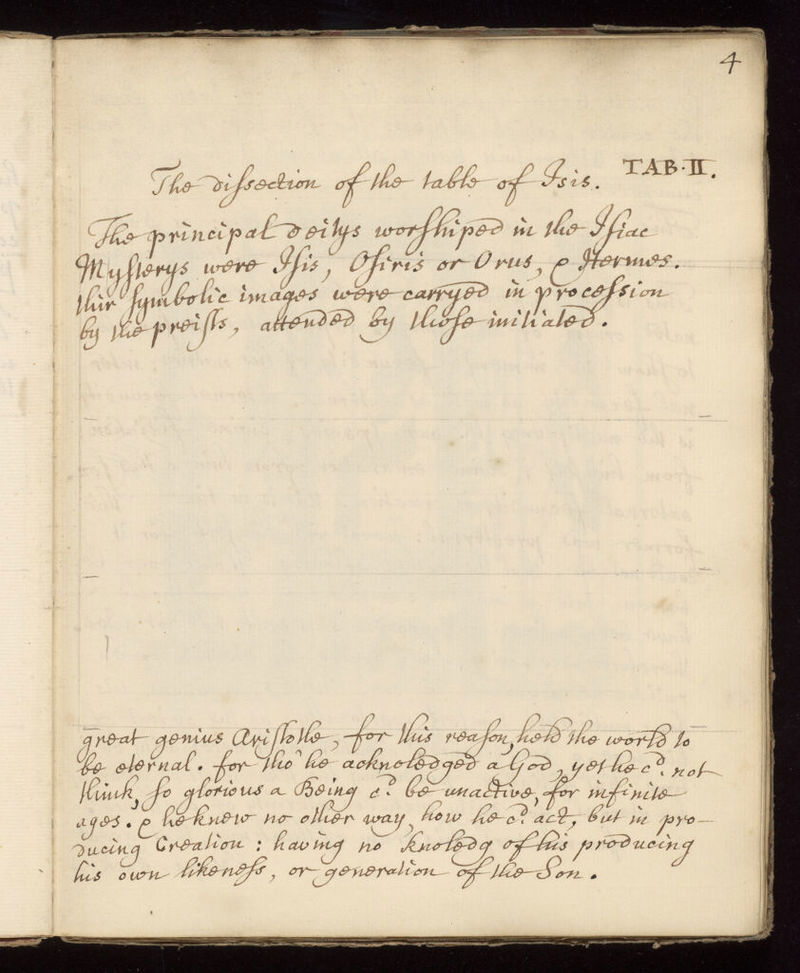 4
TAB. II.
The dissection of the table of Isis.
The principal deitys worshiped in the Isiac
Mysterys were Isis, Osiris or Orus, & Hermes.
thir symbolic images were carryed in procession
by the preists, attended by those initiated.
great genius Aristotle, for this reason, held the world to
be eternal. for tho' he acknoledged a God, yet he cd. not
think, so glorious a Being cd. be unactive, for infinite
ages. & he knew no other way, how he cd. act, but in pro-
ducing Creation: having no knoledg of his producing
his own likeness, or generation of the Son.